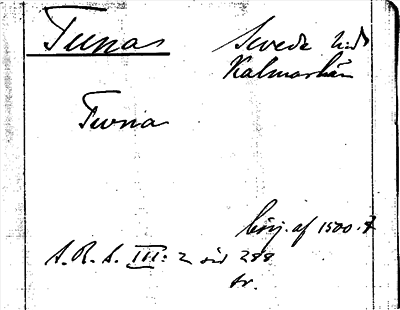 Tunas Sevede hd
Kalmarlän
Tuna
börj. af 1500-t
S.R.S. III: 2 sid 288
tr.